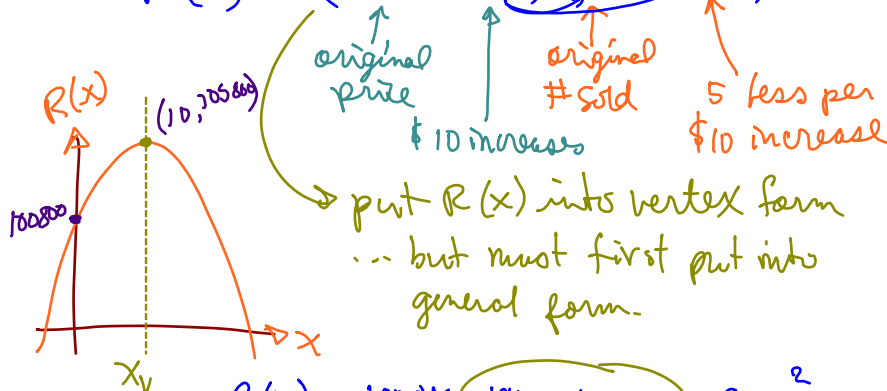 original
price
$10 increases
original
# sold
5 less per
$10 increase
R(x)
(10, 105800)
100800
put R(x) into vertex form
... but must first put into
general form.
x
Xv